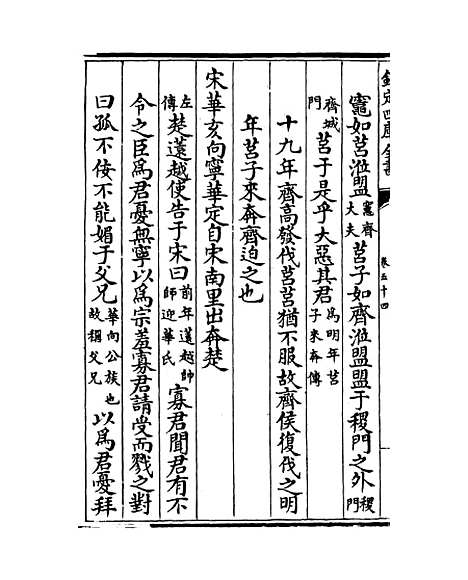 欽定四庫全書
卷五十四
竈如莒涖盟竈齊大夫莒子如齊涖盟盟于稷門之外稷門
齊城門莒于是乎大惡其君為明年莒子來奔傳
十九年齊高發伐莒莒猶不服故齊侯復伐之明
年莒子來奔齊迫之也
宋華亥向寧華定自宋南里出奔楚
左傳楚薳越使告于宋曰前年薳越帥師迎華氏寡君聞君有不
令之臣為君憂無寧以為宗羞寡君請受而戮之對
曰孤不佞不能媚于父兄華向公族也故稱父兄以為君憂拜